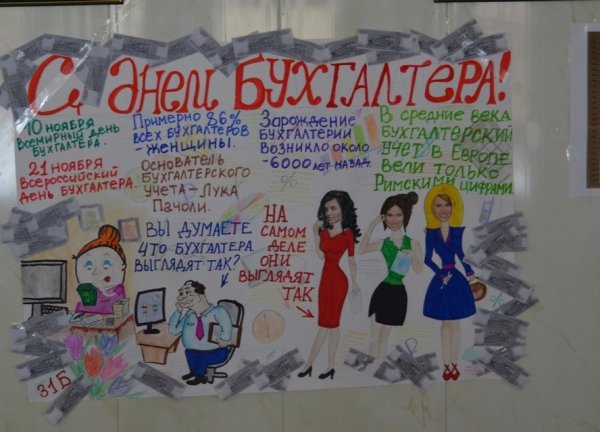 С ДНЕМ БУХГАЛТЕРА!
10 НОЯБРЯ
ВСЕМИРНЫЙ ДЕНЬ
БУХГАЛТЕРА.
21 НОЯБРЯ
ВСЕРОССИЙСКИЙ
ДЕНЬ БУХГАЛТЕРА.
ПРИМЕРНО 86%
ВСЕХ БУХГАЛТЕРОВ
-ЖЕНЩИНЫ.
ОСНОВАТЕЛЬ
БУХГАЛТЕРСКОГО
УЧЕТА-ЛУКА
ПАЧОЛИ.
ЗАРОЖДЕНИЕ
БУХГАЛТЕРИИ
ВОЗНИКЛО ОКОЛО
-6000 ЛЕТ НАЗАД.
В СРЕДНИЕ ВЕКА
БУХГАЛТЕРСКИЙ
УЧЕТ В ЕВРОПЕ
ВЕЛИ ТОЛЬКО
РИМСКИМИ ЦИФРАМИ.
ВЫ ДУМАЕТЕ
ЧТО БУХГАЛТЕРА
ВЫГЛЯДЯТ ТАК?
НА
САМОМ
ДЕЛЕ
ОНИ
ВЫГЛЯДЯТ
ТАК
31Б